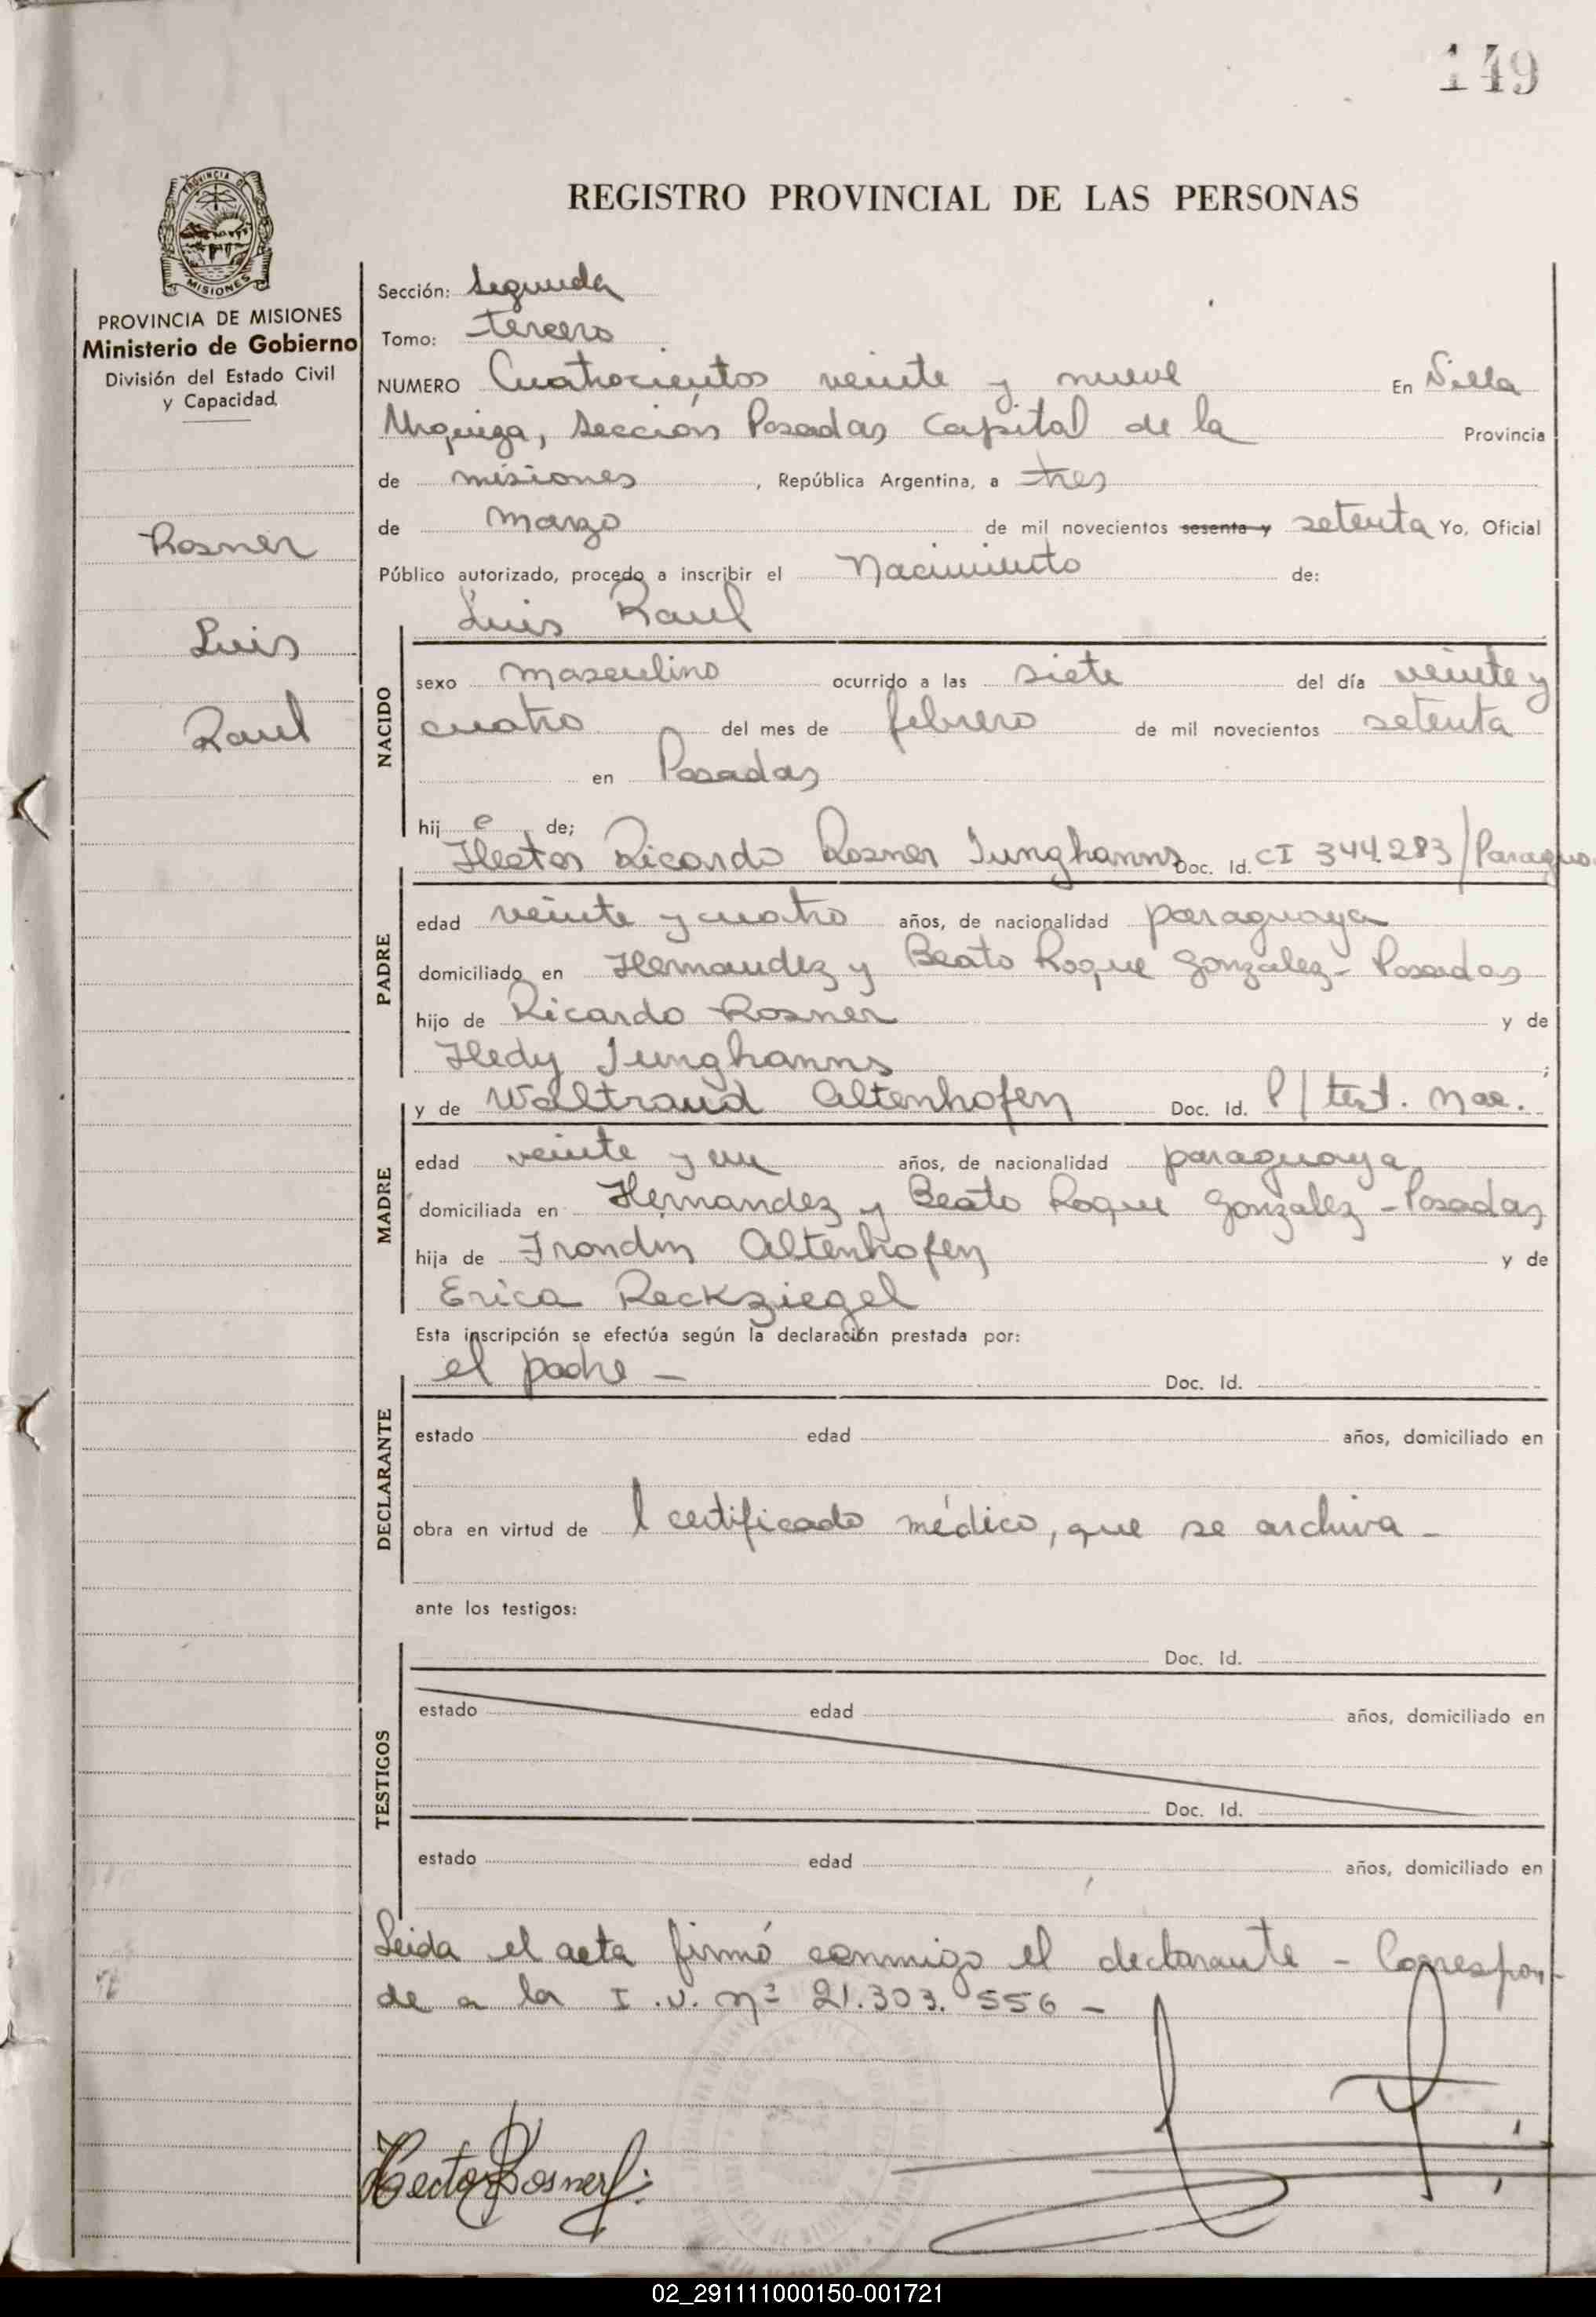 149
PROVINCIA DE
MISIONES
REGISTRO PROVINCIAL DE LAS PERSONAS
PROVINCIA DE MISIONES
Ministerio de Gobierno
División del Estado Civil
y Capacidad
Rosner
Luis
Raul
Sección: Segunda
Tomo: tercero
NUMERO Cuatrocientos veinte y nueve En Villa
Urquiza, Sección Posadas Capital de la Provincia
de misiones, República Argentina, a tres
de Marzo de mil novecientos sesenta y setenta Yo, Oficial
Público autorizado, procedo a inscribir el Nacimiento de:
Luis Raul
NACIDO
sexo masculino ocurrido a las siete del día veinte y
cuatro del mes de febrero de mil novecientos setenta
en Posadas
hij o de;
Hector Ricardo Rosner Junghanns Doc. Id. CI 344.283/Paragua
PADRE
edad veinte y cuatro años, de nacionalidad paraguaya
domiciliado en Hernandez y Beato Roque Gonzalez - Posadas
hijo de Ricardo Rosner y de
Hedy Junghanns ;
y de Waltraud Altenhofen Doc. Id. P/ test. nac.
MADRE
edad veinte y un años, de nacionalidad paraguaya
domiciliada en Hernandez y Beato Roque Gonzalez - Posadas
hija de Altenhofen y de
Erica Reckziegel
Esta inscripción se efectúa según la declaración prestada por:
el padre - Doc. Id.
DECLARANTE
estado edad años, domiciliado en
obra en virtud de l certificado médico, que se archiva -
ante los testigos:
Doc. Id.
TESTIGOS
estado edad años, domiciliado en
Doc. Id.
estado edad años, domiciliado en
Leida el acta firmó conmigo el declarante - Correspon-
de a la I.U. Nº 21.303.556 -
Hector Rosner J.
02_291111000150-001721